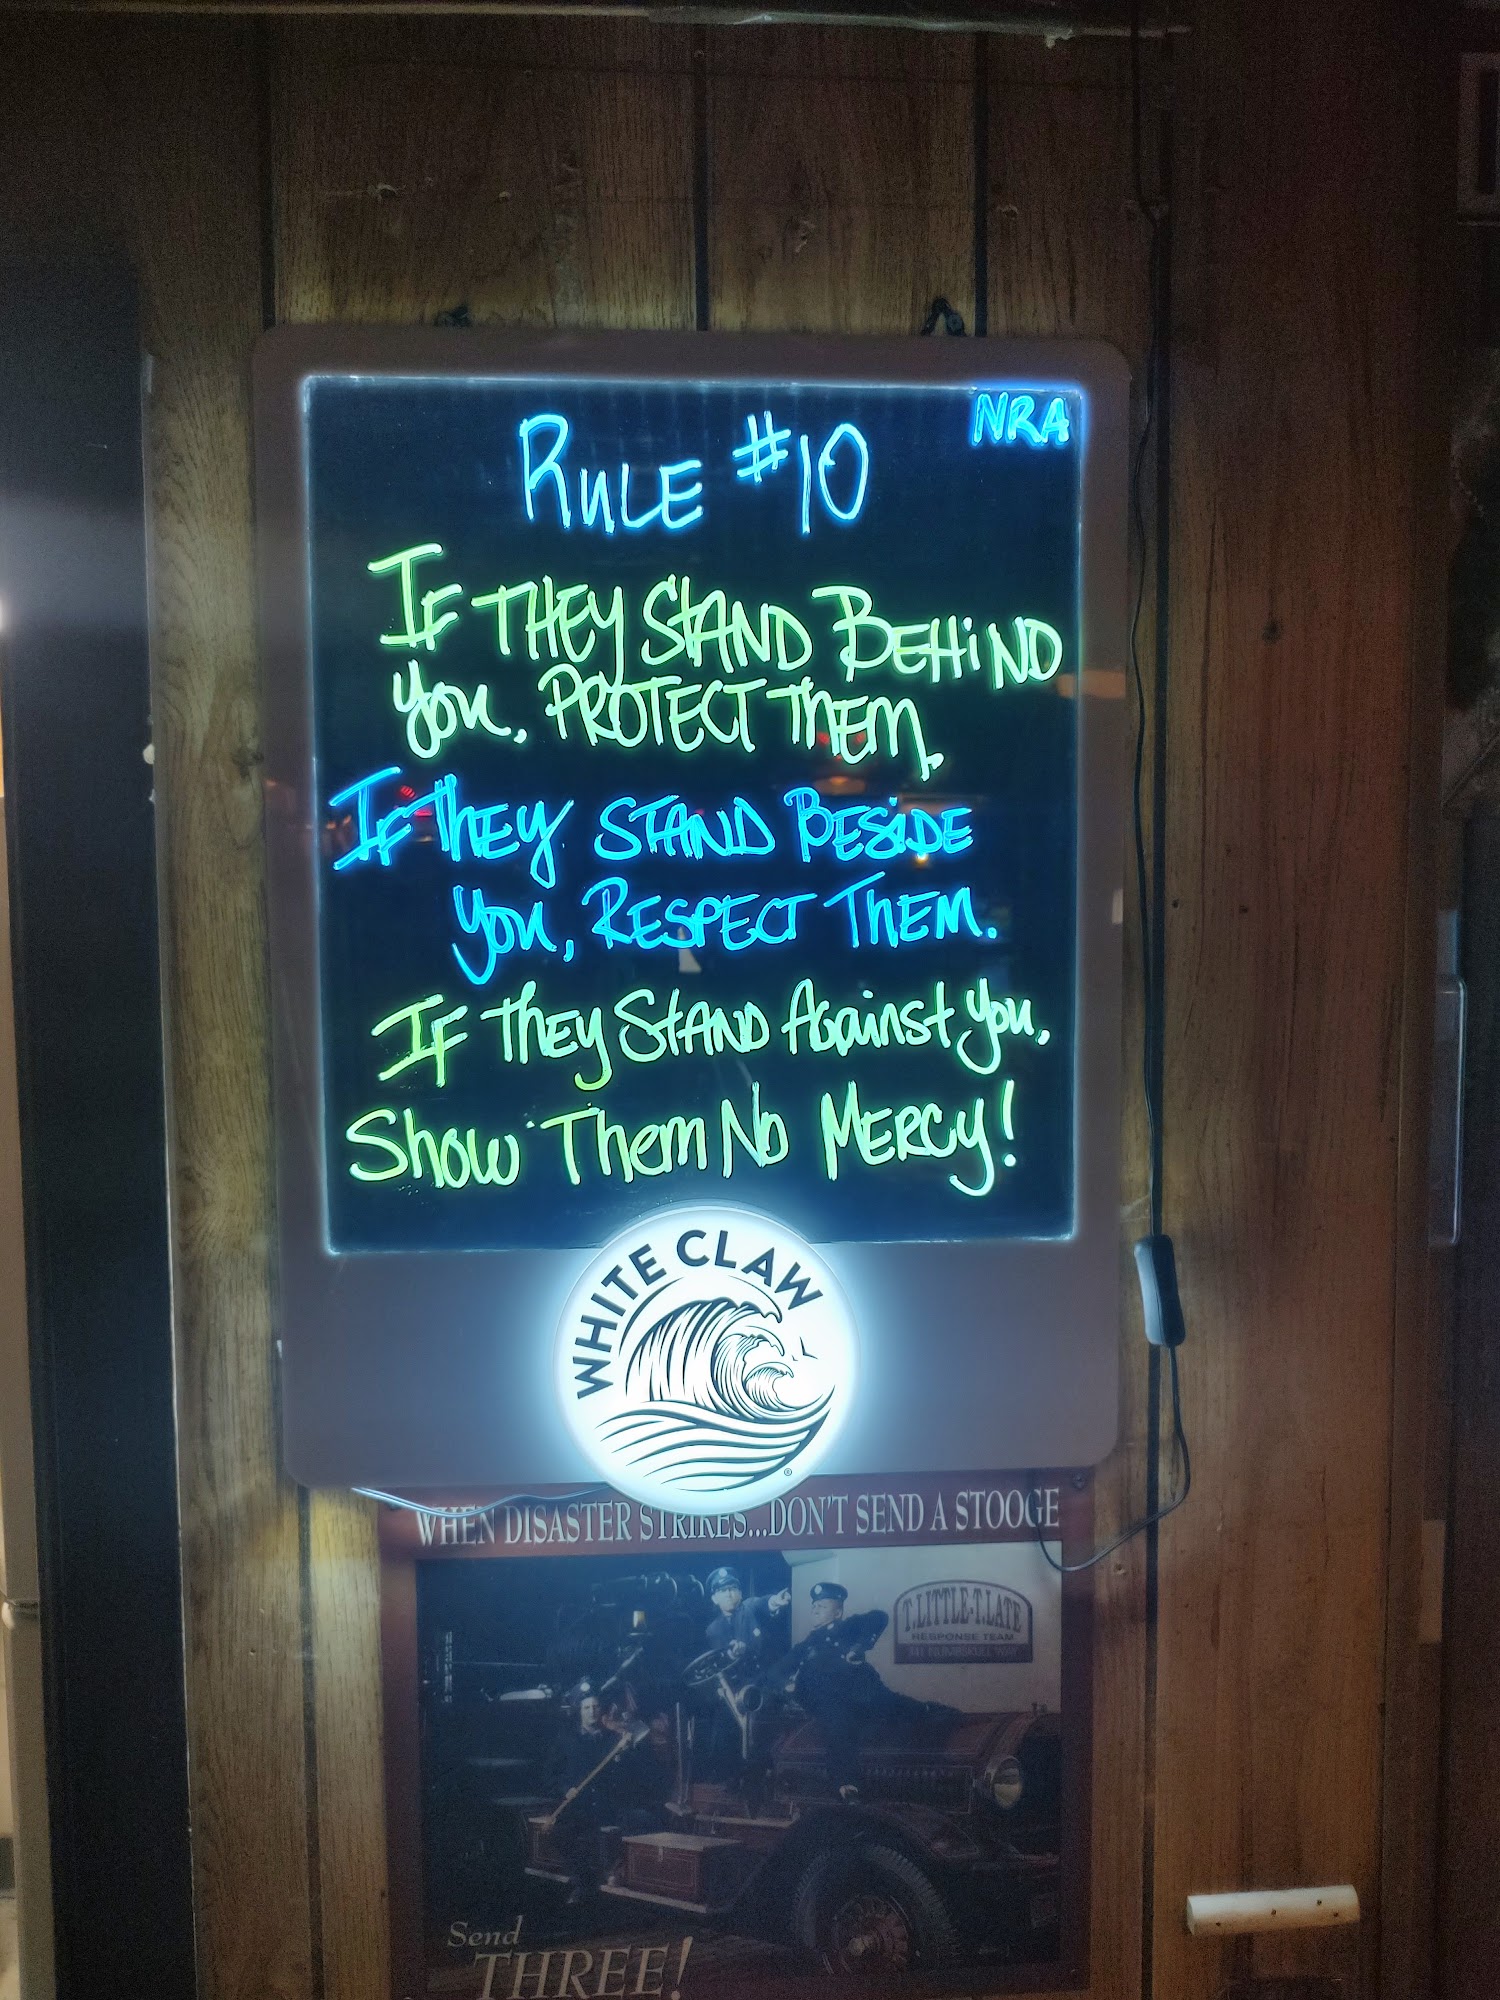 NRA
RULE #10
IF THEY STAND BEHIND
YOU, PROTECT THEM.
IF THEY STAND BESIDE
YOU, RESPECT THEM.
IF THEY STAND AgAinst you,
Show Them No MERCY!
WHITE CLAW
®
WHEN DISASTER STRIKES...DON'T SEND A STOOGE
T.LITTLE-T.LATE
RESPONSE TEAM
Send
THREE!